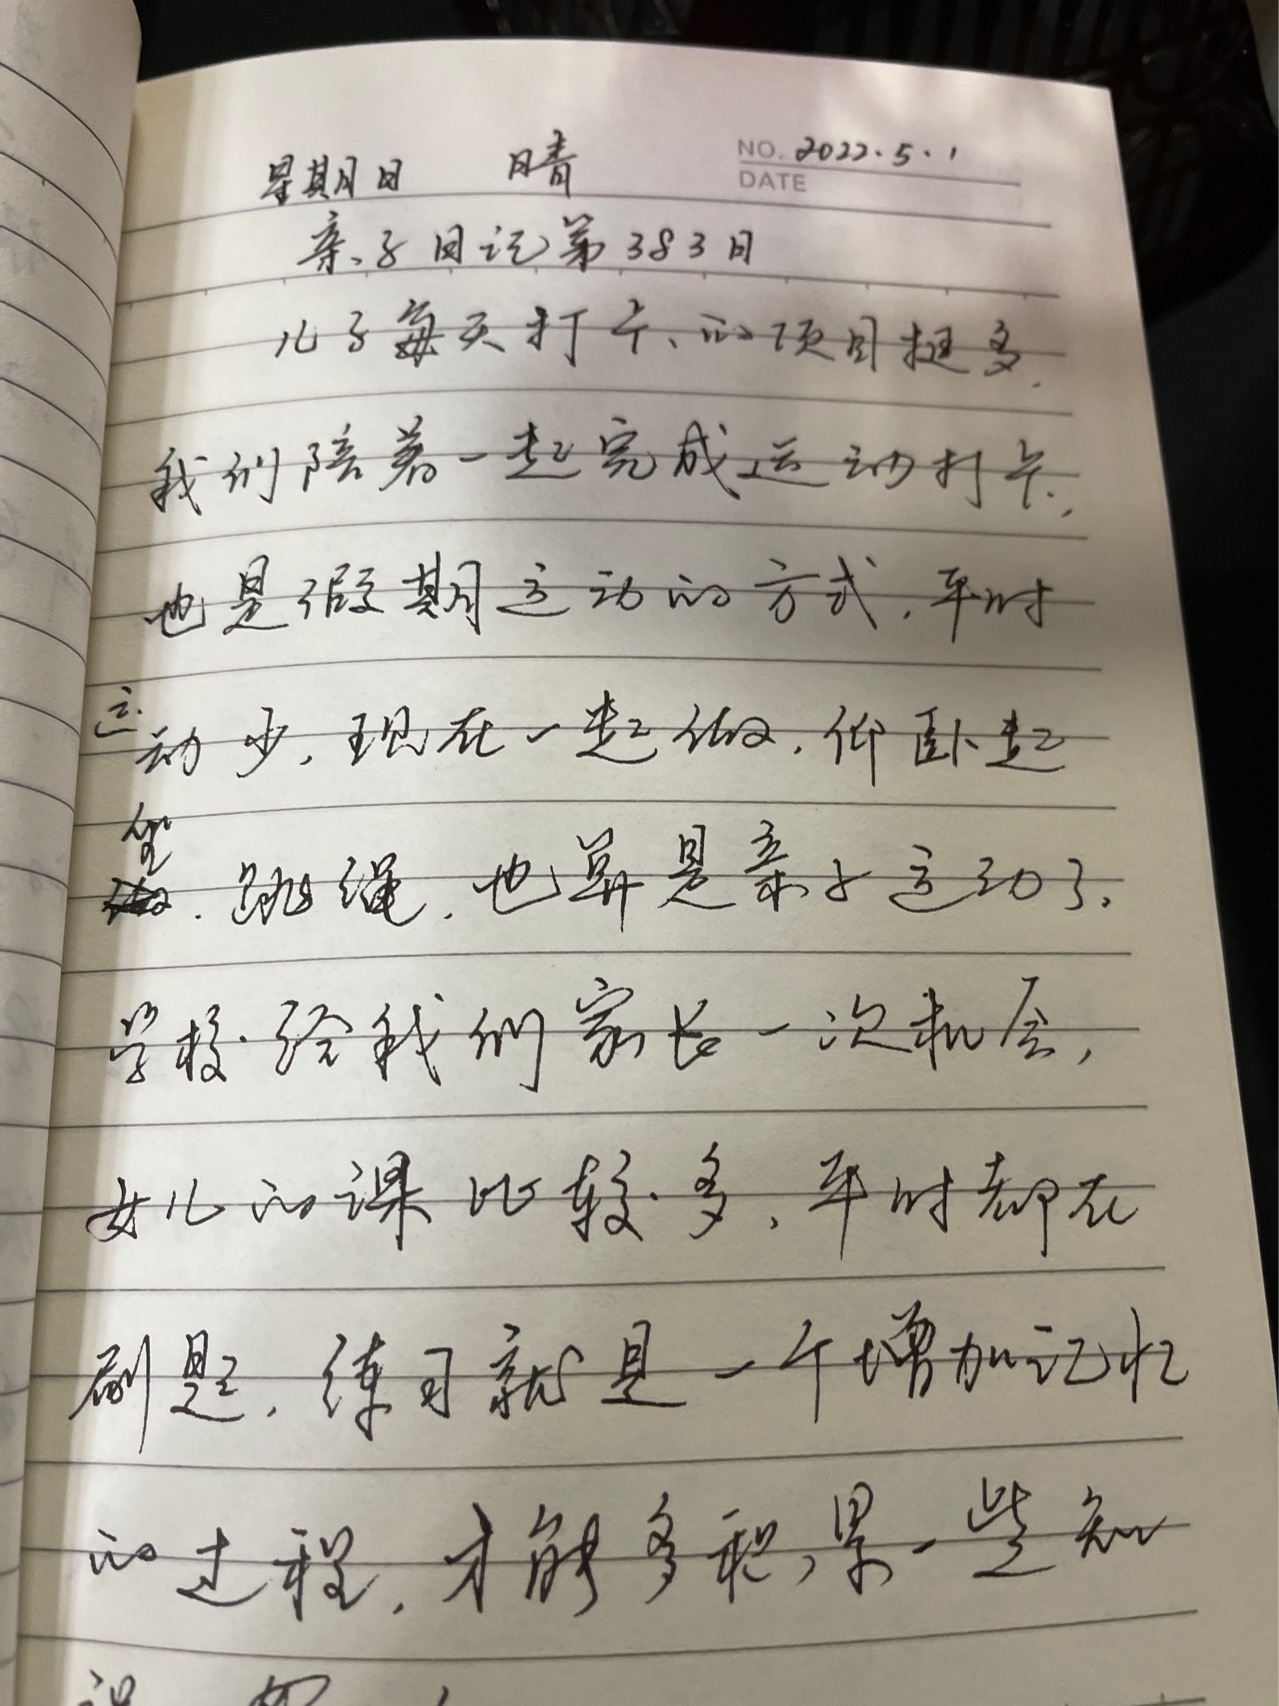 NO. 2022.5.1
星期日 晴
DATE
亲子日记第383日
儿子每天打卡的项目挺多,
我们陪着一起完成运动打卡,
也是假期运动的方式,平时
运动少,现在一起做,仰卧起
坐,跳绳,也算是亲子运动了,
学校给我们家长一次机会,
女儿的课比较多,平时都在
刷题,练习就是一个增加记忆
的过程,才能多积累一些知
识